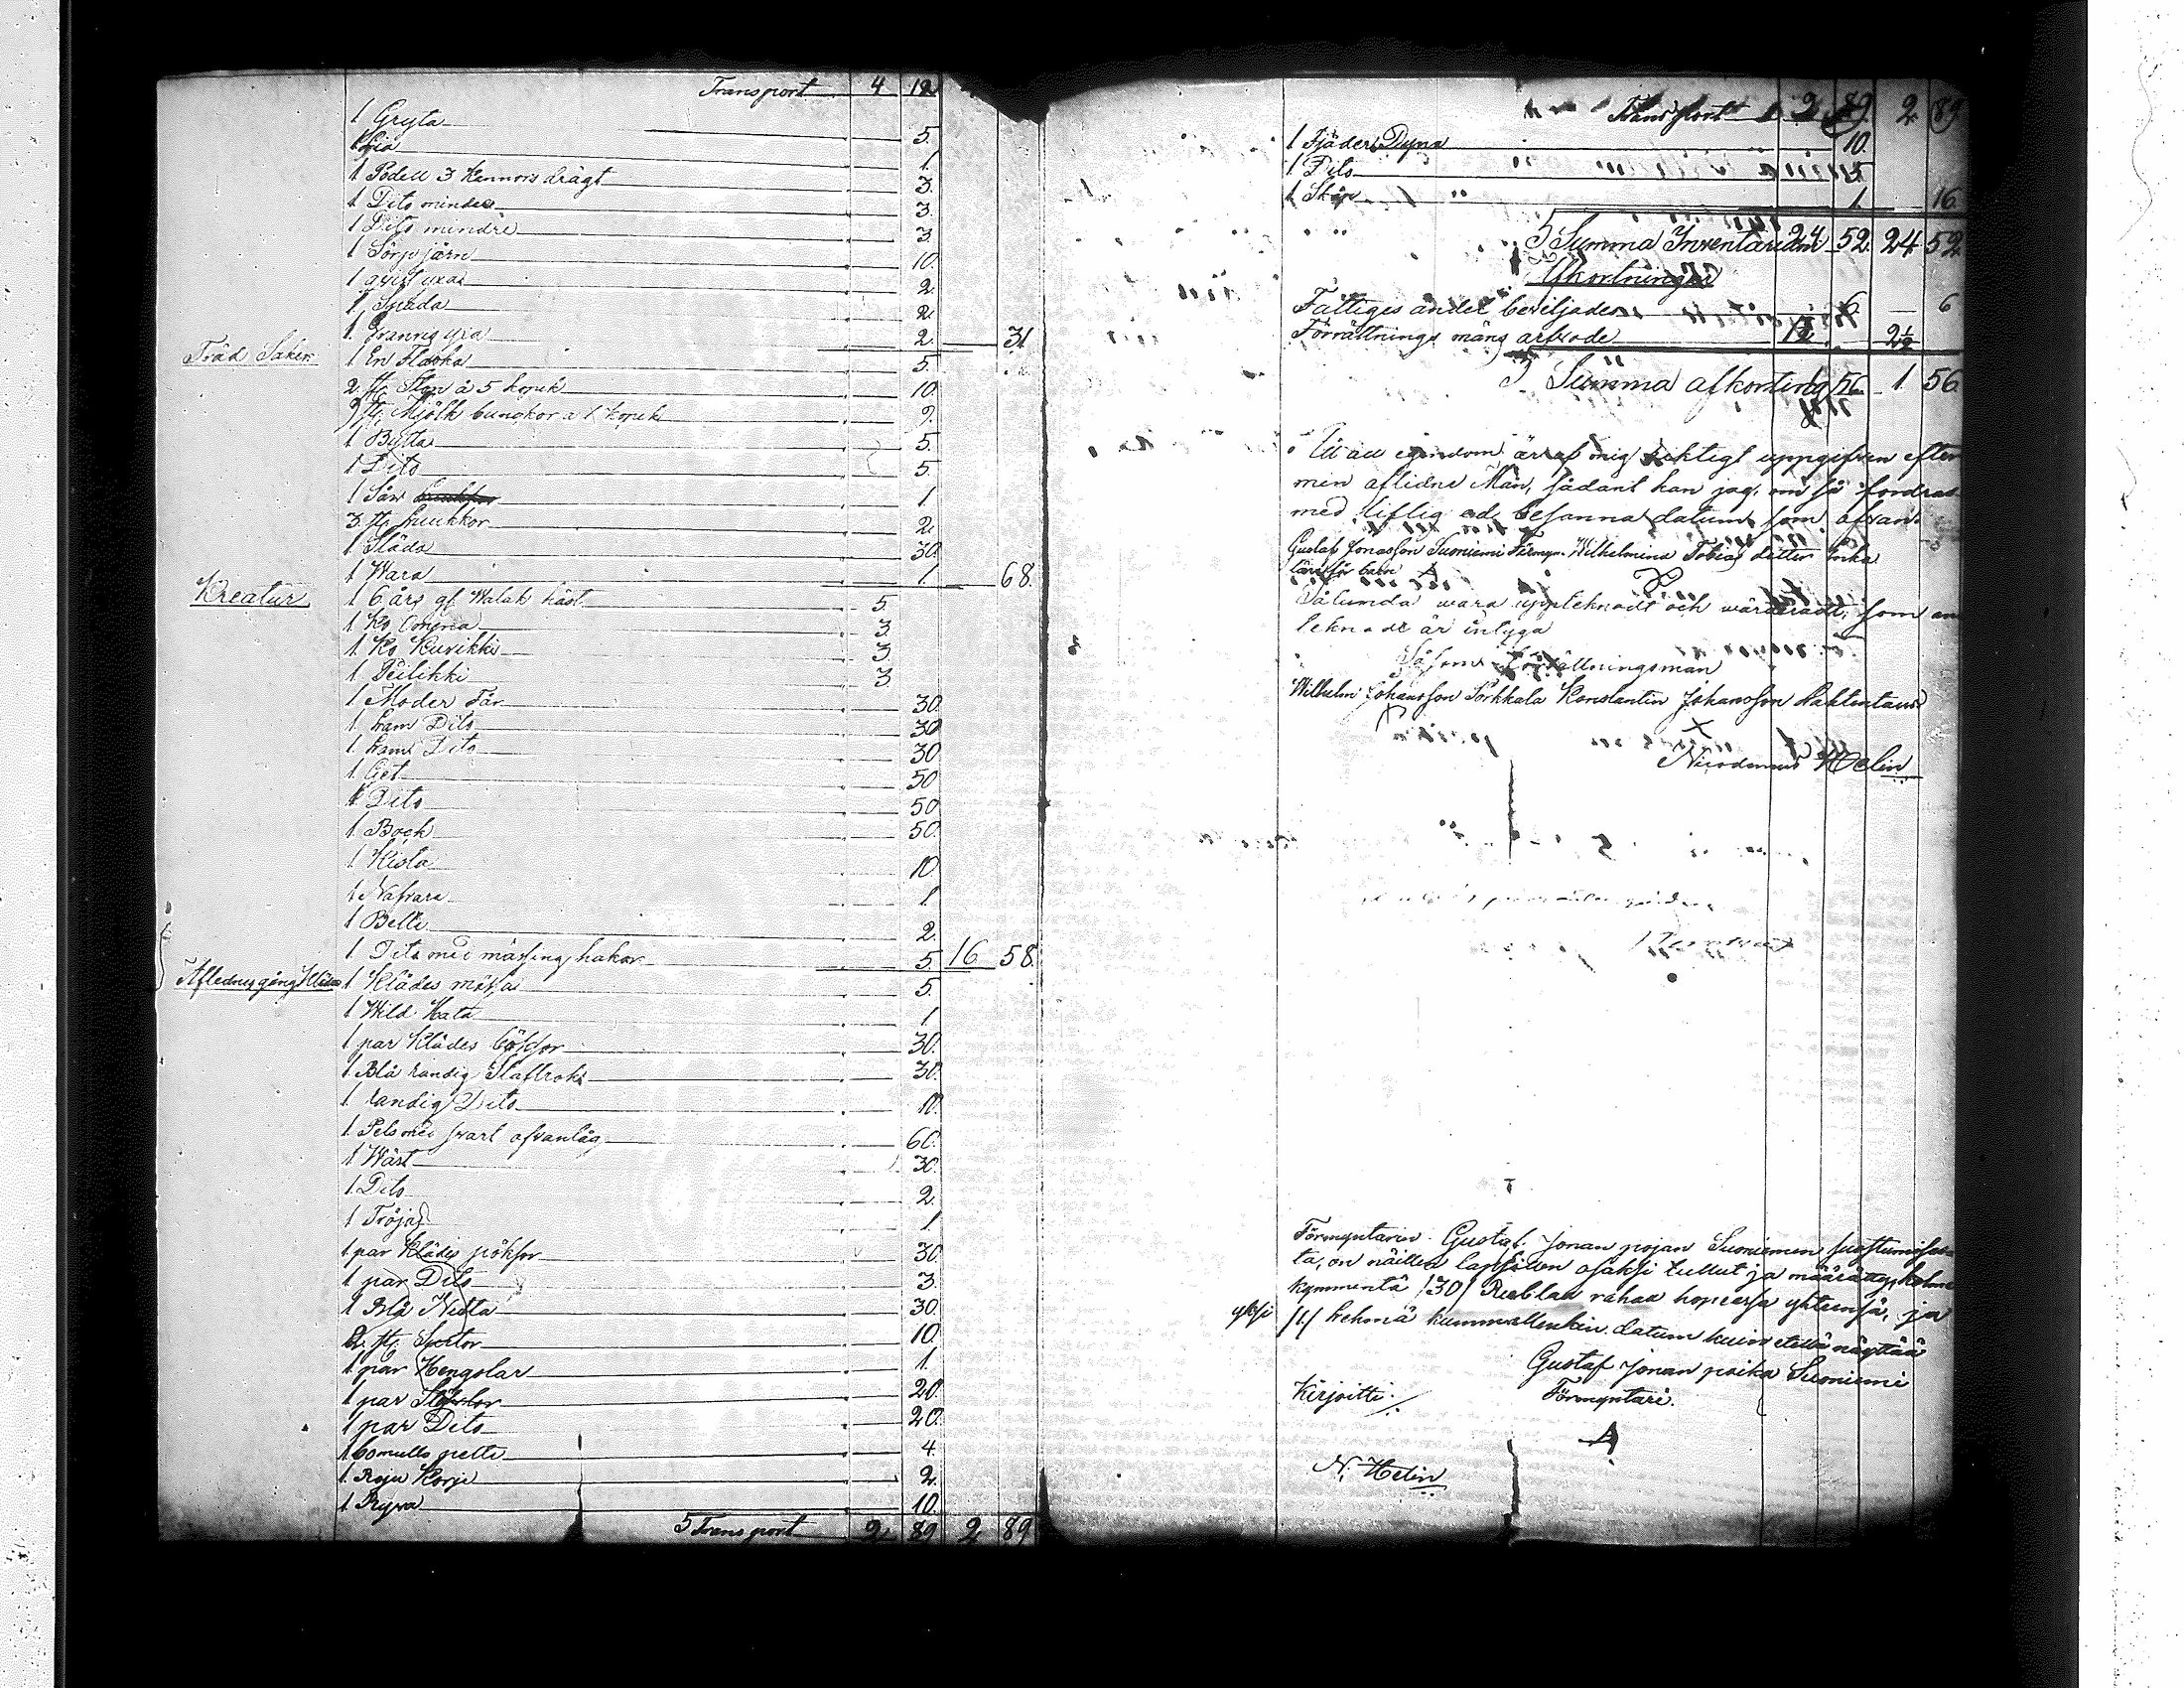 Transport 4 12
1 Gryta 5.
1 Lia 1.
1 3 drägt 3.
1 Dito mindre 3.
1 Dito mindre 3.
1 järn 10.
1 2.
1 Spada 2.
1. lia 2. 31
Träd Saker 1 En Flaska 5.
2 st. Stop à 5 kopek 10.
9 st. Mjölk bunckor a 1 kopek 9.
1 Bytta 5.
1 Dito 5.
1 Sår 1
3. st. 2.
1 Släda 30.
1 Wara 1. 68.
Kreatur 1 6 års gl Walak häst 5.
1 Ko Omena 3.
1. Ko Kurikki 3
1. 3.
1 Moder Får 30.
1 Lam Dito 30
1. Lam Dito 30
1 Get 50
1 Dito 50
1. Bock 50.
1. Kista 10.
1 Nafvare 1.
1 Belte 2.
1 Dito med mässing hakar 5. 16 58.
1 Klädes mössa 5.
1 Wild Hatt 1
1 par Klädes böxor 30.
1 Blå randig Slaftrokk 30.
1. randig Dito 10.
1. Pels med svart ofvanlag 60.
1 Wäst 30.
1. Dito 2.
1 Tröja 1.
1 par Klädes pöksor 30.
1 par Dito 3.
1 Blå 30.
2. st. Skortor 10.
1 par Hengslar 1.
1 par Stöflor 20.
1 par Dito 20.
1 bomulls 4.
1. Raju Korje 2.
1. Ryya 10.
5 Transport 2. 89 2 89
Transport 2. 89. 2. 89
1 Fjäder Dyna 10.
1 Dito 5
1 Skåp 1. 16.
S Summa Inventarium 24 52. 24 52.
Afkortningar
Fattiges andel beviljades 6. 6
Förrättnings mäns arfvode 1 2
S Summa afkortning 56. 1. 56.
Att all egendom är af mig riktigt uppgifven efter
min aflidne Man, sådant kan jag, om så fordras
med liflig ed besanna datum som ofvan.
Gustaf Jonasson Suoniemi Förmyn. Wilhelmina Tobias dotter Enka
för barn
Sålunda vara uppteknadt och värderadt, som an
teknade är intyga
Såsom Förrättningsmän
Wilhelm Johansson Sorkkala Konstantin Johansson Lahtentausta
X
Nicodemus Helin
Förmyntarin Gustaf Jonan pojan Suoniemen suostumisesa
ta, on näitten lapsitten osaksi tullut ja määrätty, kolme
kymmentä /30/ Rublaa rahaa hopeassa yhteensä, ja
yksi /1/ lehmä kummallenkin. datum kuin etellä näyttää
Gustaf Jonan poika Suoniemi
Kirjoitti: Förmyntäri.
N. Helin